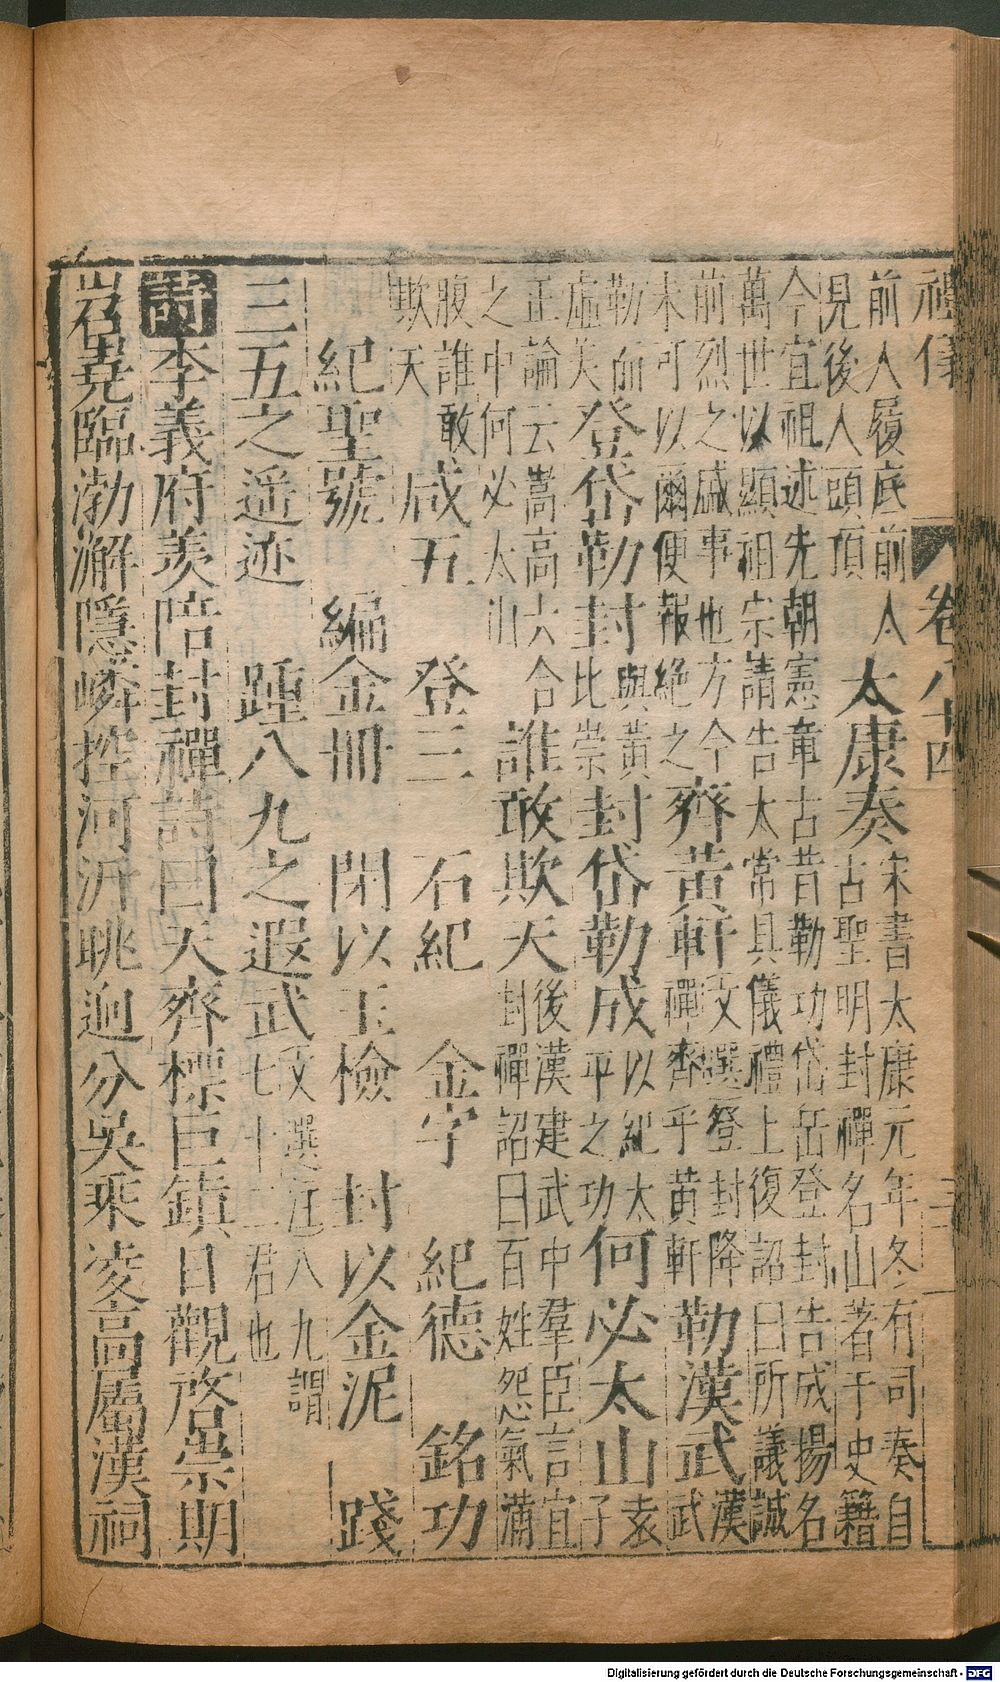 禮儀 卷八十四 三
前人履底前人見後人頭頂太康奏宋書太康元年冬有司奏自古聖明封禪名山著于史籍
今宜祖述先朝憲章古昔勒功岱岳登封告成揚名萬世以顯祖宗請告太常具儀禮上復詔曰所議誠
前烈之盛事也方今未可以爾便報絕之齊黃軒文選登封降禪齊乎黃軒勒漢武漢武
勒而虛美登岱勒封與黃比崇封岱勒成以紀太平之功何必太山袁子
正論云嵩高六合之中何必太山誰敢欺天後漢建武中羣臣言宜封禪詔曰百姓怨氣滿
腹誰敢欺天咸五 登三 石紀 金字 紀德 銘功
紀聖號 編金冊 閉以玉檢 封以金泥 踐
三五之遥迹 踵八九之遐武文選注八九謂七十二君也
詩李義府羨陪封禪詩曰天齊標巨鎮日觀啓崇期
岧嶤臨渤澥隱嶙控河沂眺迥分吳乘凌高屬漢祠
Digitalisierung gefördert durch die Deutsche Forschungsgemeinschaft - DFG